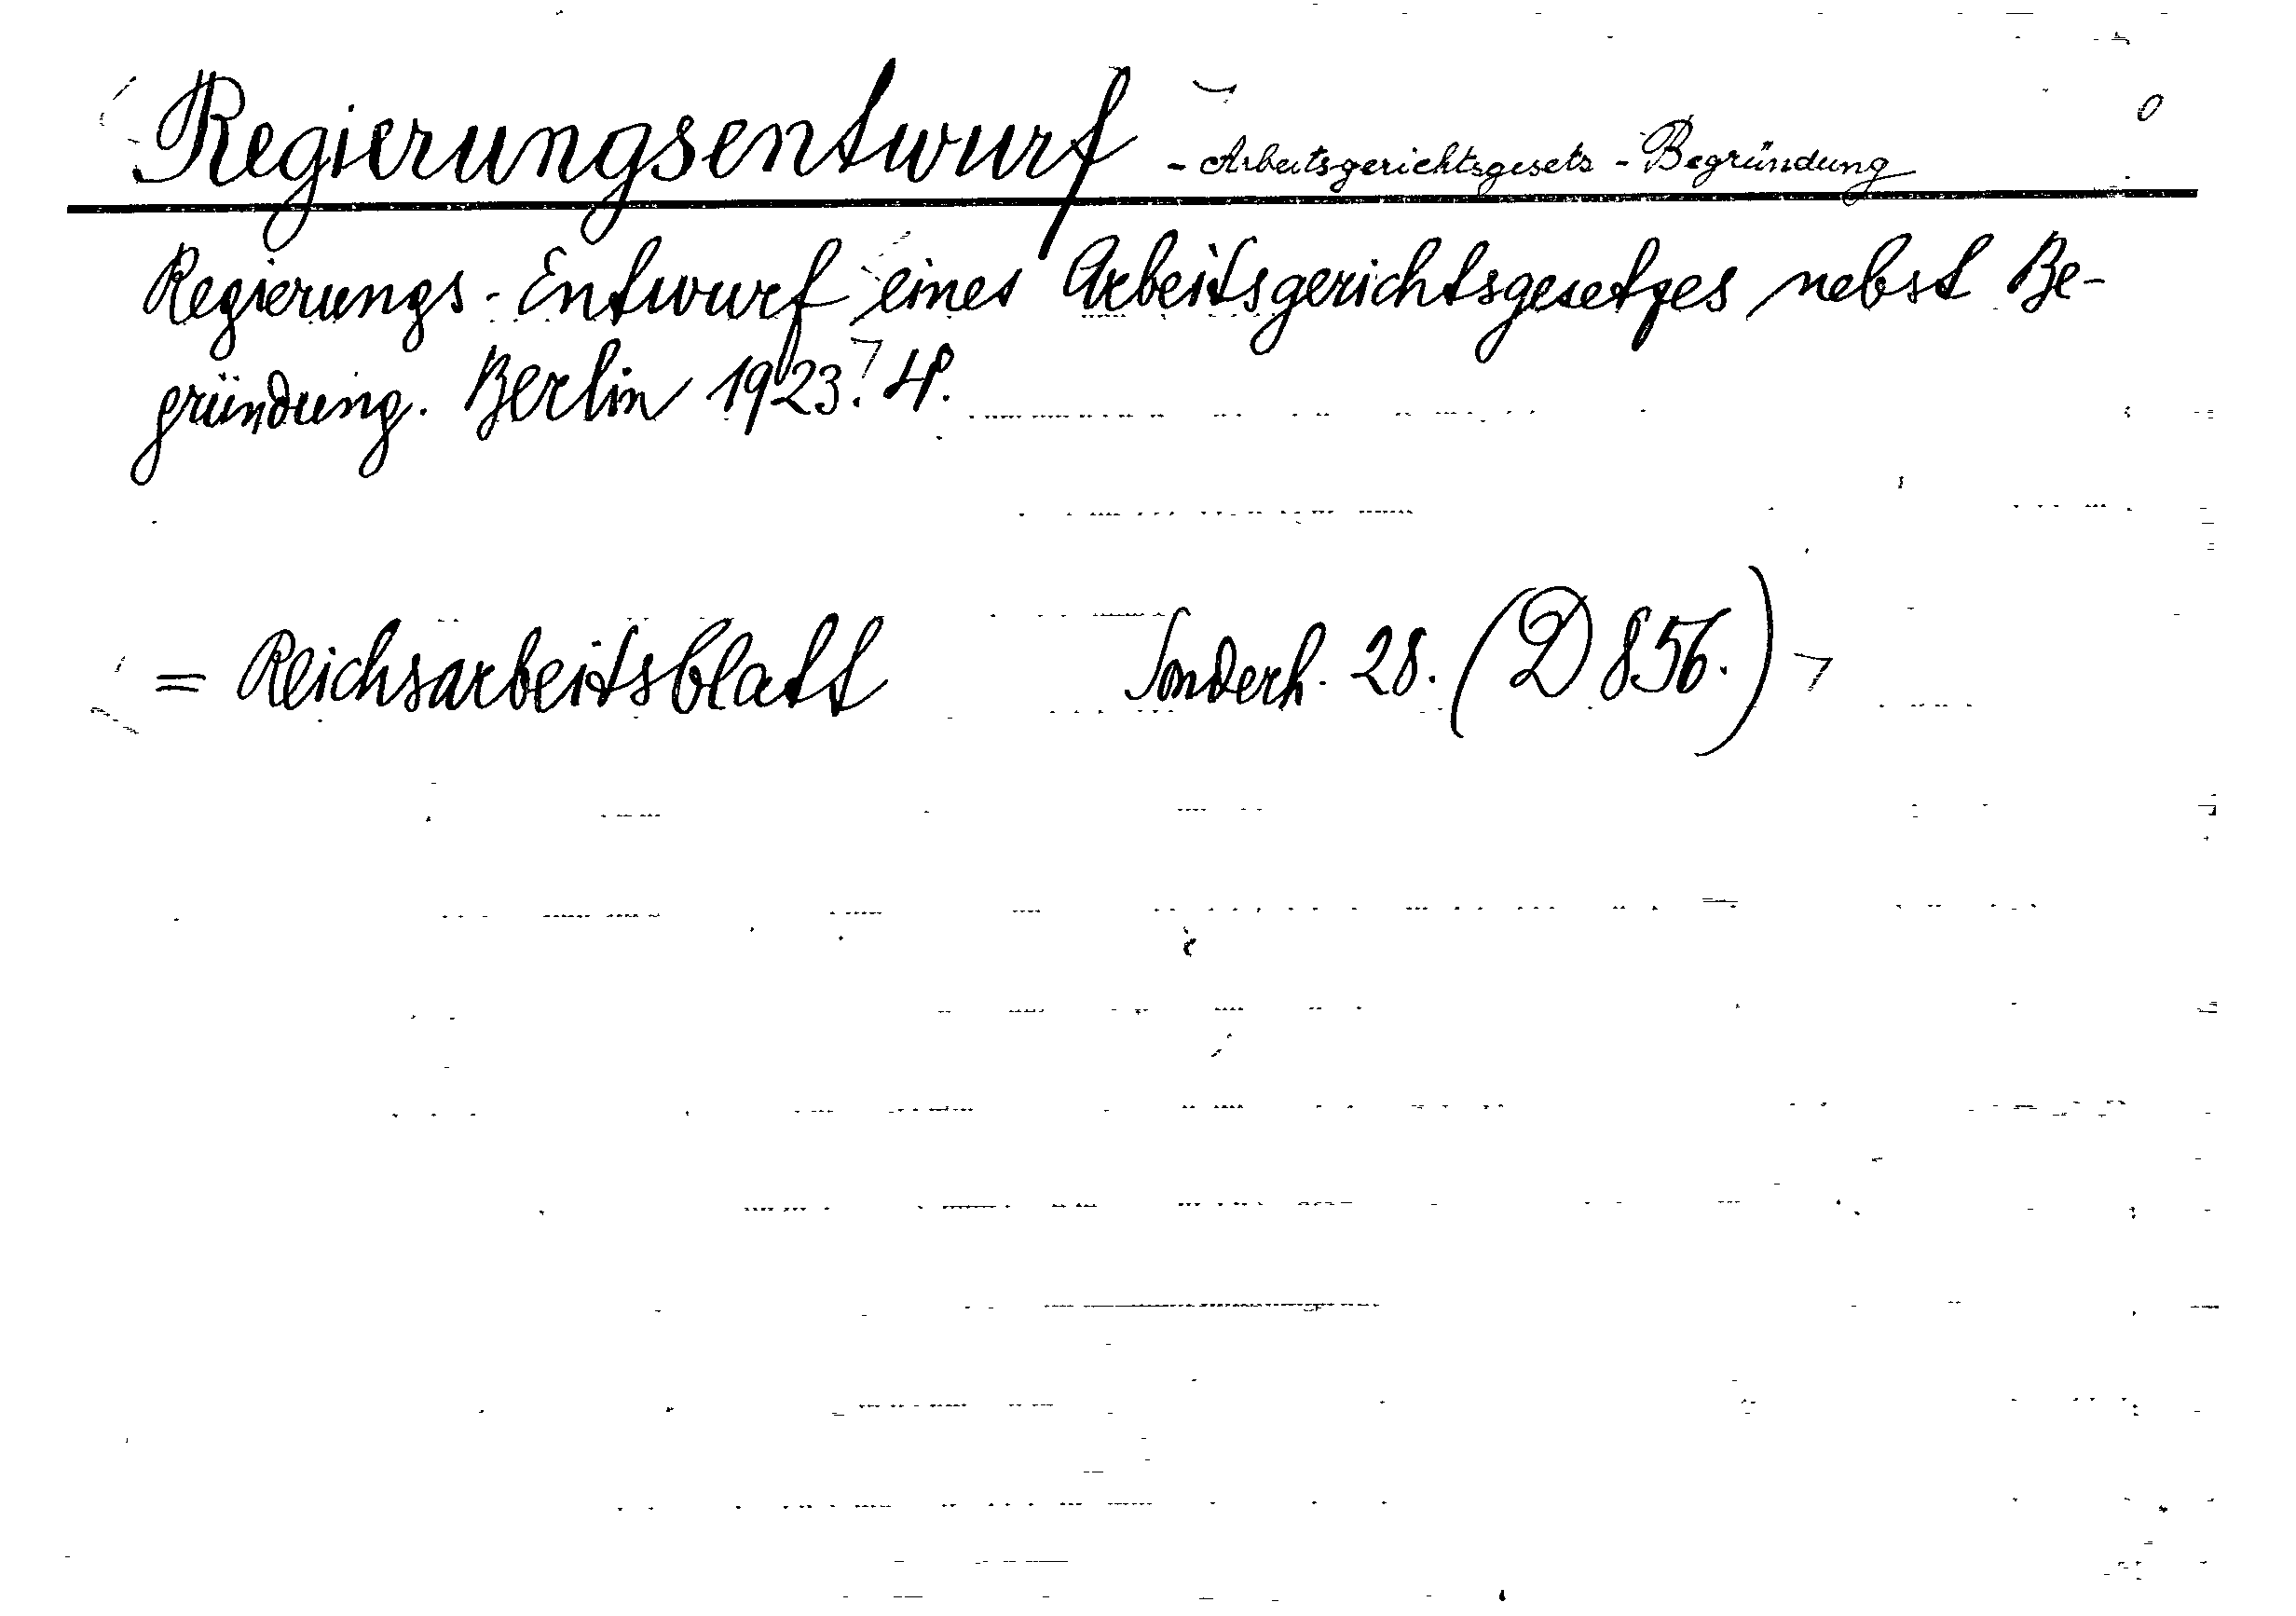 Regierungsentwurf - Arbeitsgerichtsgesetz - Begründung
Regierungs-Entwurf eines Arbeitsgerichtsgesetzes nebst Be-
gründung. Berlin 1923. 4°.
= Reichsarbeitsblatt Sonderh. 28. (D 856.)